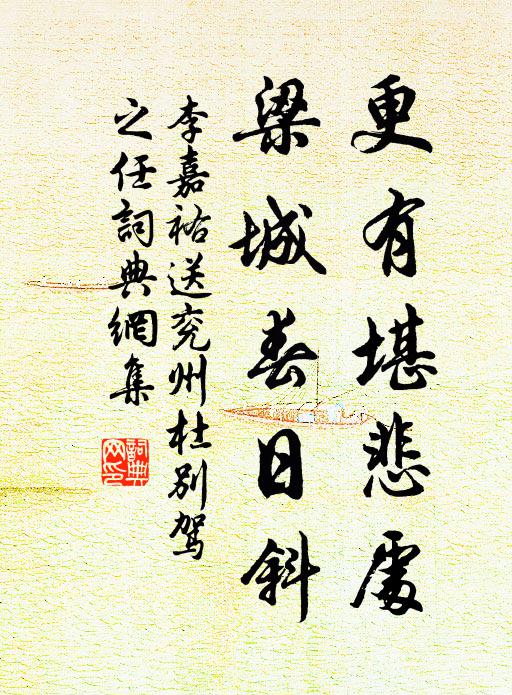 更有堪悲處
梁城春日斜
李嘉祐送兗州杜別駕
之任詞典網集
詞典
网印